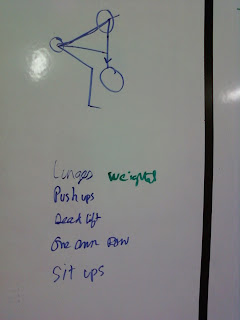 Lunges weighted
Push ups
Dead lift
One arm row
Sit ups